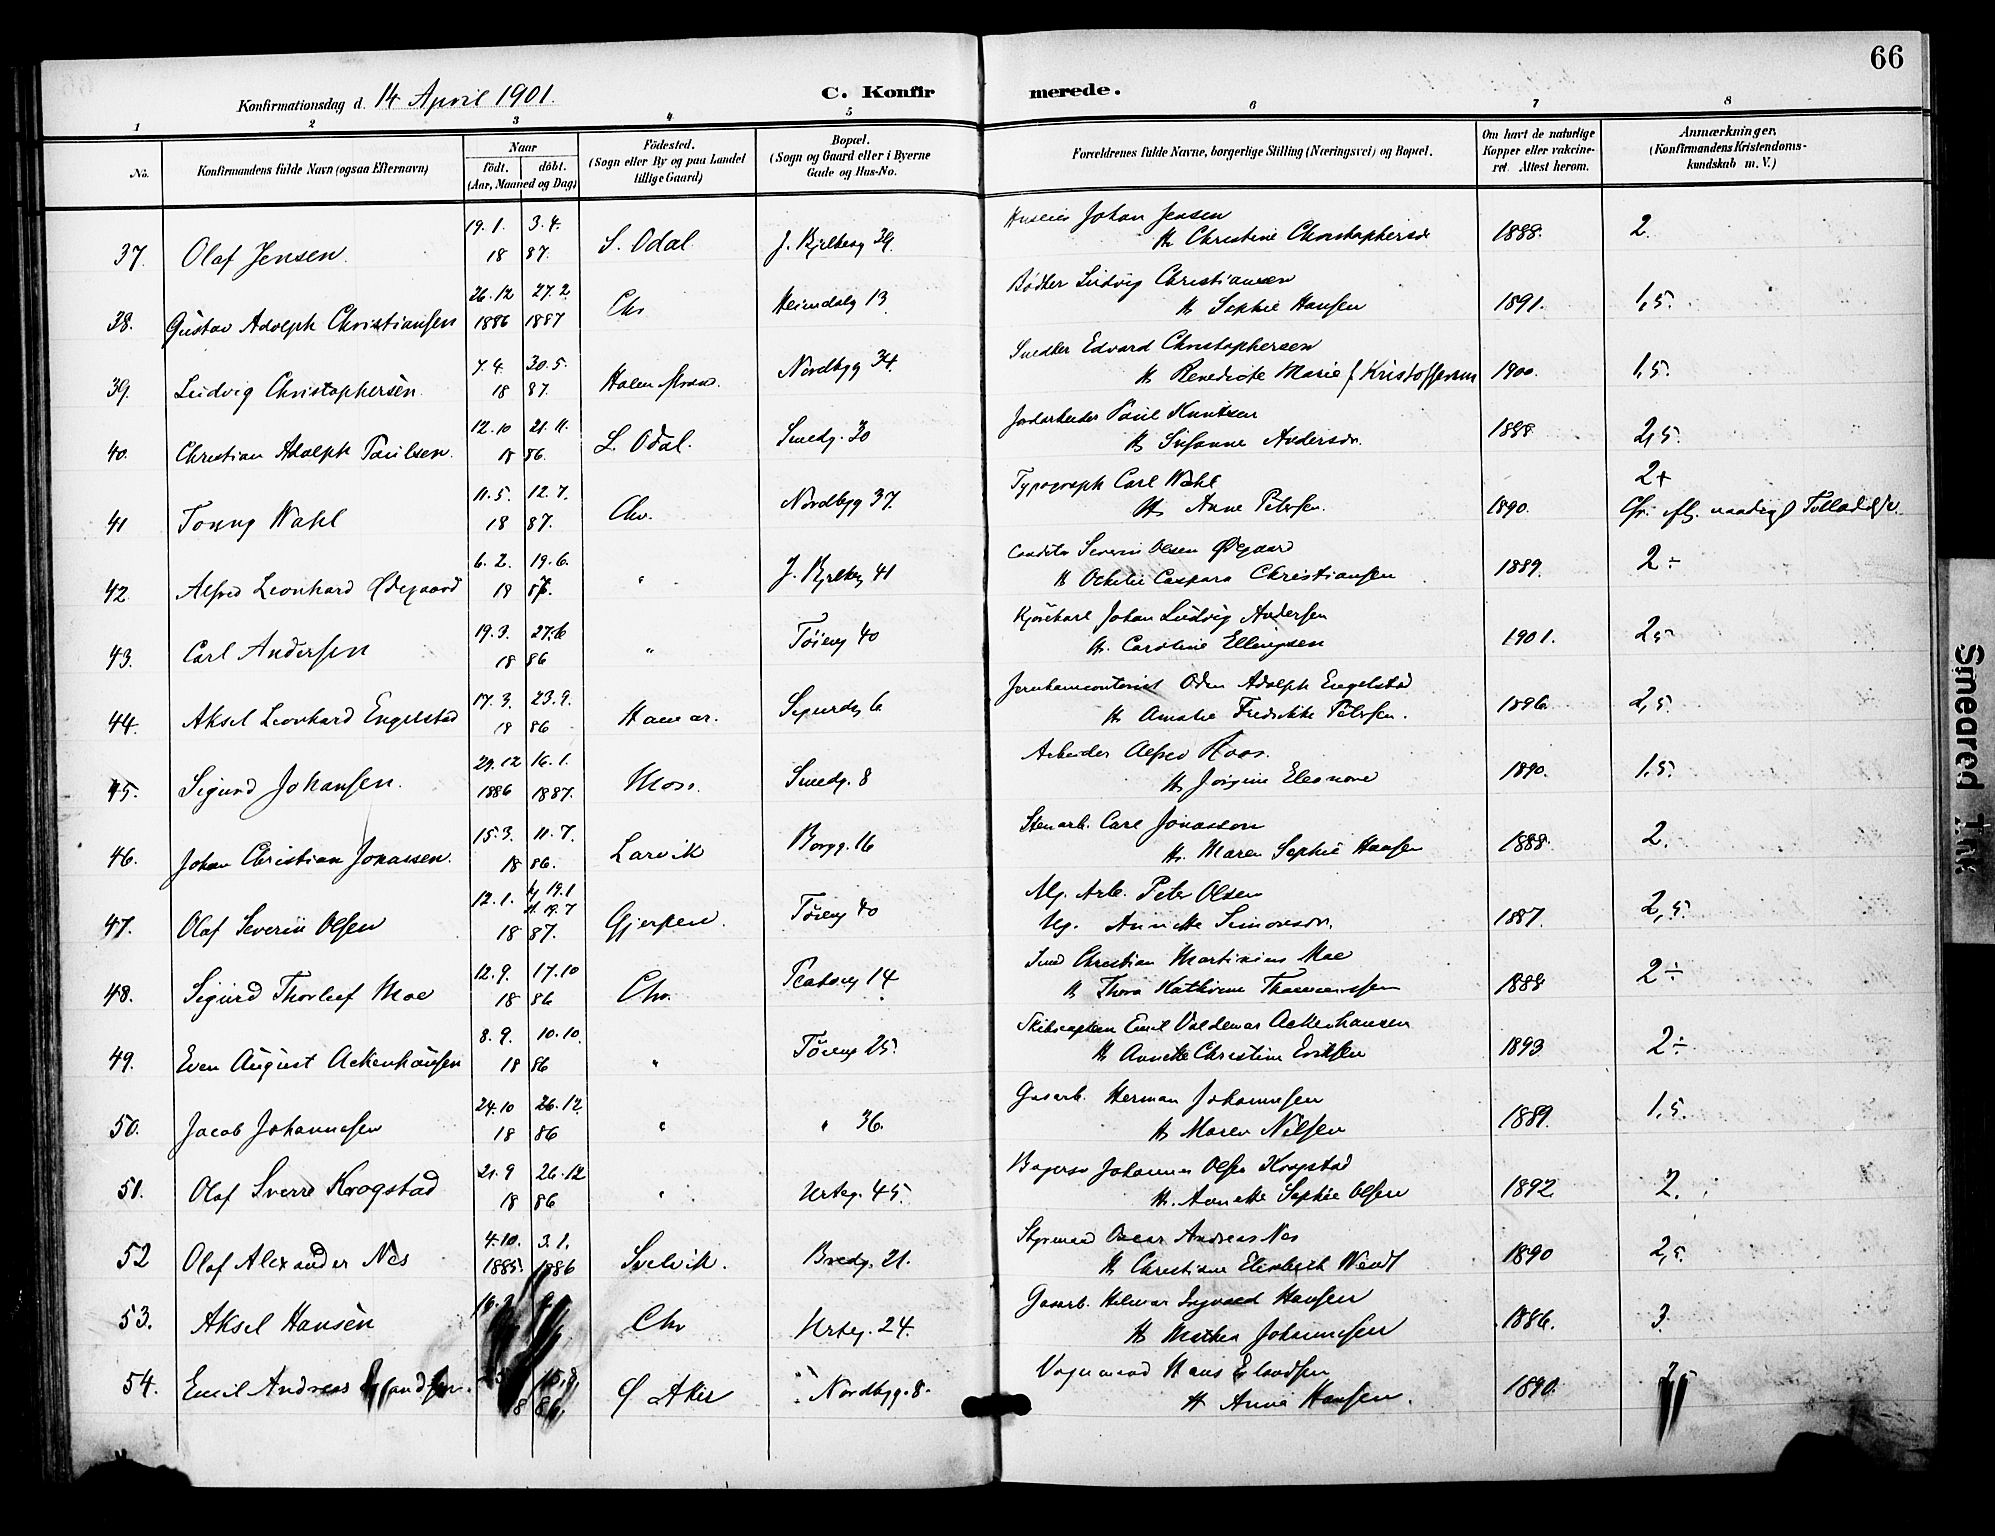 66
Konfirmationsdag d. 14 April 1901.
C. Konfirmerede.
1 2 3 4 5 6 7 8
No. Konfirmandens fulde Navn (ogsaa Efternavn) Naar födt. döbt. (Aar, Maaned og Dag) Födested. (Sogn eller By og paa Landet tillige Gaard) Bopæl. (Sogn og Gaard eller i Byerne Gade og Hus-No. Forældrenes fulde Navne, borgerlige Stilling (Næringsvei) og Bopæl. Om havt de naturlige Kopper eller vakcineret. Attest herom. Anmærkninger, (Konfirmandens Kristendomskundskab m. V.)
37. Olaf Jensen 19.1. 3.4. 18 87. S. Odal 39 Johan Jensen
H Christine 1888. 2.
38. Gustav Adolph Christiansen 26.12 1886 27.2. 1887 Chr Heimdalg 13 Bödker Ludvig Christiansen
H Sophie Hansen 1891. 1,5.
39. Ludvig Christophersen 7.4. 30.5. 18 87. Holmestrand. Nordbyg 34. Snedker Edvard Christophersen
H Benedicte Marie f Kristoffersen 1900. 1,5.
40. Christian Adolph Paulsen. 12.10 21.11. 18 86. S. Odal. Smedg. 30 Jordarbeider Paul Knutsen
H Susanne Andersdr. 1888. 2,5.
41 Wahl 11.5. 12.7. 18 87. Chr. Nordbyg 37. Typograph Carl Wahl
H. Anne Petersen. 1890. 2+
naadigst Tilladelse.
42. Alfred Leonhard Ødegaard 6.2. 19.6. 18 87. " 41 Conditor Severin Olsen Ødegaard
H Caspara Christiansen 1889. 2÷
43. Carl Andersen 19.3. 27.6 18 86 " Töieng 40 Kjörekarl Johan Ludvig Andersen
H. Caroline Ellingsen 1901. 2,5
44. Aksel Leonhard Engelstad 17.3. 23.9. 18 86 Hamar. Sigurdsg 6 Oden Adolph Engelstad
H. Amalie Fredrikke Petersen. 1896. 2,5.
45. Sigurd Johansen. 29.12 1886 16.1. 1887. Moss. Smedg. 8 Arbeider Alfred Roos.
H. Jörgine Eleonore 1890. 1,5.
46. Johan Christian Jonassen. 15.3. 11.7. 18 86. Larvik Borgg. 16 Stenarb. Carl Jonasson
H. Maren Sophie Hansen 1888. 2.
47. Olaf Severin Olsen 12.1. 19.1 19.7 18 87. Gjerpen. Töieng 40 Ug. Arb. Peter Olsen
Ug. Annette Simonsdr. 1887. 2,5.
48. Sigurd Thorleif Moe 12.9. 17.10 18 86 Chr. Platoug 14 Smed Christian Martinius Moe
H Thora Kathrine 1888 2÷
49. Even August Ackenhausen 8.9. 10.10. 18 86 " Töieng 25. Skibscaptein Emil Valdemar Ackenhausen
H Annette Christine Eriksen 1893. 2÷
50. Jacob Johannesen 24.10 26.12. 18 86 " " 36. Gasarb. Herman Johannesen
H Maren Nilsen 1889. 1,5.
51. Olaf Sverre Krogstad 21.9 26.12 18 86 " Urteg. 45. Bagersv Johannes Olsen Krogstad
H. Annette Sophie Olsen 1892. 2.
52 Olaf Alexander Nes 4.10. 1885. 3.1. 1886 Svelvik. Bredg. 21. Styrmand Oscar Andreas Nes
H Christiane Elisabeth Wendt 1890 2,5.
53. Aksel Hansen Chr Urteg. 24. Gasarb. Hilmar Ingvald Hansen
H Mathea Johannesen 1886. 3.
54. Emil Andreas 15.8. 18 86. Aker " Nordbyg. 8. Vognmand Hans Elandsen
H Anna Hansen. 1890. 2,5
Smeared Ink